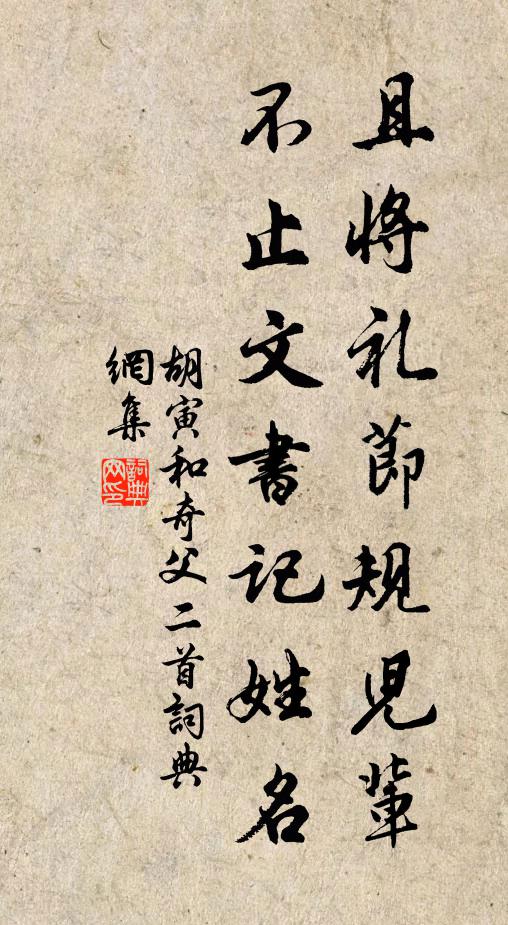 且将礼節規児輩
不止文書記姓名
胡寅和奇父二首詞典
網集
詞典
网印